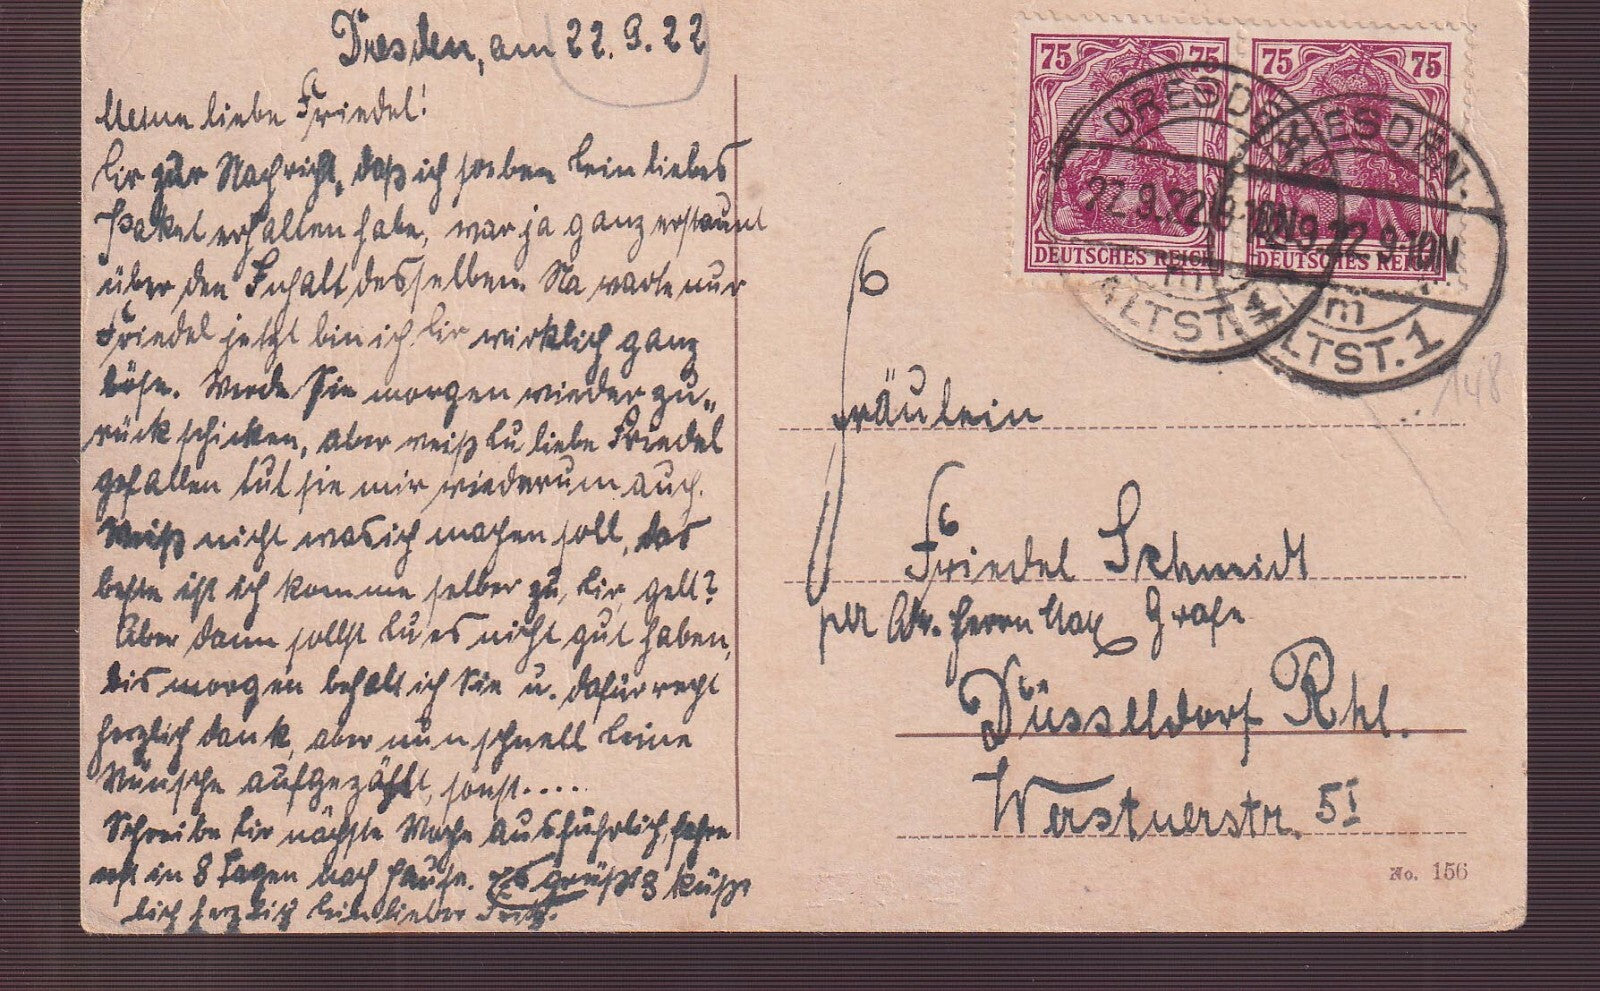 Dresden, am 22.9.22
Meine liebe Friedel!
Dir zur Nachricht, daß ich soeben Dein liebes
Paket erhalten habe, war ja ganz erstaunt
über den Inhalt desselben. Na warte nur
Friedel jetzt bin ich Dir wirklich ganz
böse. Werde Sie morgen wieder zu„
rück schicken, aber weißt Du liebe Friedel
gefallen tut sie mir wiederum auch.
Weiß nicht was ich machen soll, das
beste ist ich komme selber zu Dir, gell?
Aber dann sollst Du es nicht gut haben,
bis morgen behalt ich Sie u. dafür recht
herzlich dank, aber nun schnell Deine
Wünsche aufgezählt, sonst.....
Schreibe Dir nächste Woche ausführlich, fahre
in 8 Tagen nach Hause. Es grüßt & küßt
Dich herzlich Dein lieber Fritz.
75 75
75 75
DEUTSCHES REICH
DEUTSCHES REICH
DRESDEN
22.9.22
ALTST. 1
DRESDEN
22 9-10N
m
ALTST. 1
148
Fräulein
Friedel Schmidt
per Adr. Herrn Max Grafe
Düsseldorf Rhl.
Werstnerstr. 5I
No. 156